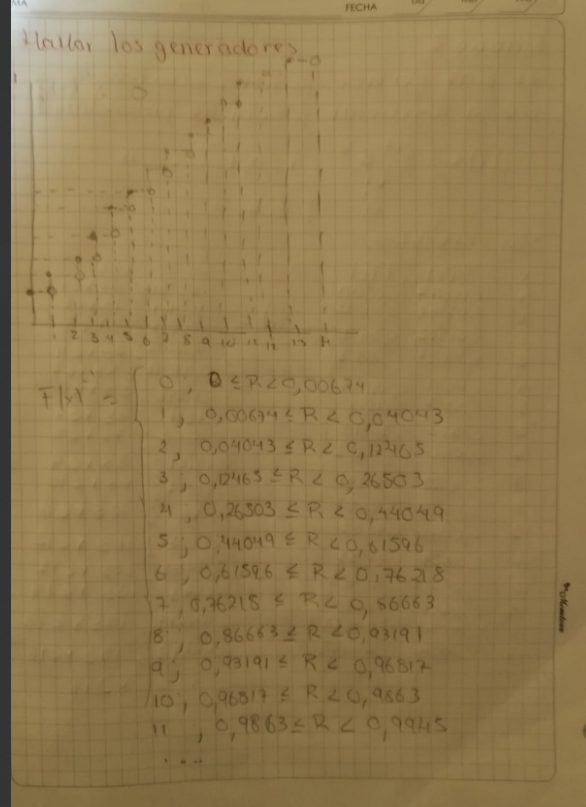 FECHA
Hallar los generadores
1
1 2 3 4 5 6 7 8 9 10 11 12 13 14
F(x)⁻¹ =
0 , 0 ≤ R < 0,00674
1 , 0,00674 ≤ R < 0,04043
2 , 0,04043 ≤ R < 0,12465
3 ; 0,12465 ≤ R < 0,26503
4 ; 0,26503 ≤ R < 0,44049
5 ; 0,44049 ≤ R < 0,61596
6 ; 0,61596 ≤ R < 0,76218
7 ; 0,76218 ≤ R < 0,86663
8 ; 0,86663 ≤ R < 0,93191
9 ; 0,93191 ≤ R < 0,96817
10 ; 0,96817 ≤ R < 0,9863
11 , 0,9863 ≤ R < 0,9945
...